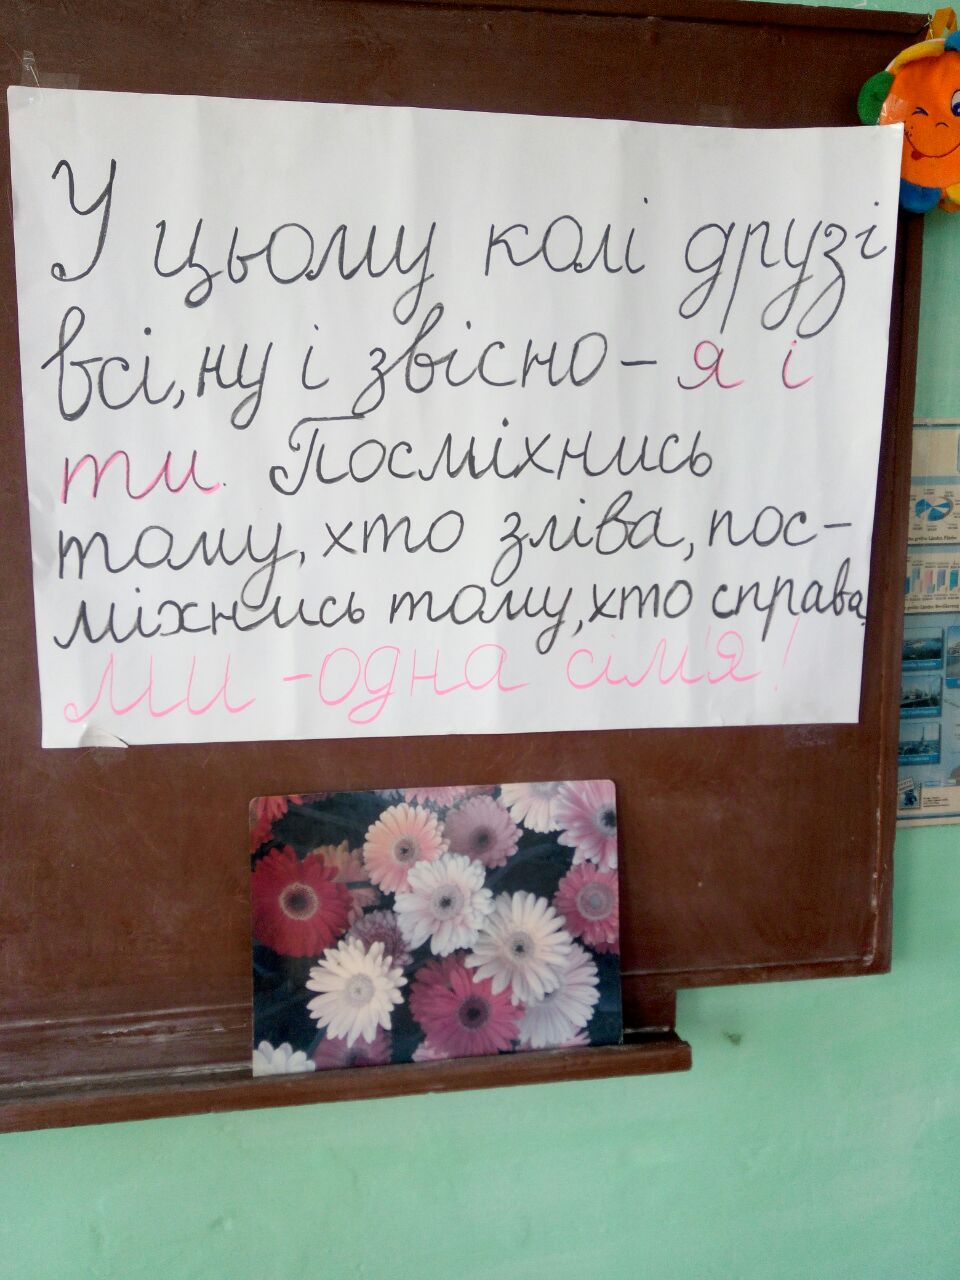 У цьому колі друзі
всі, ну і звісно – я і
ти. Посміхнись
тому, хто зліва, пос-
міхнись тому, хто справа,
ми - одна сім'я!